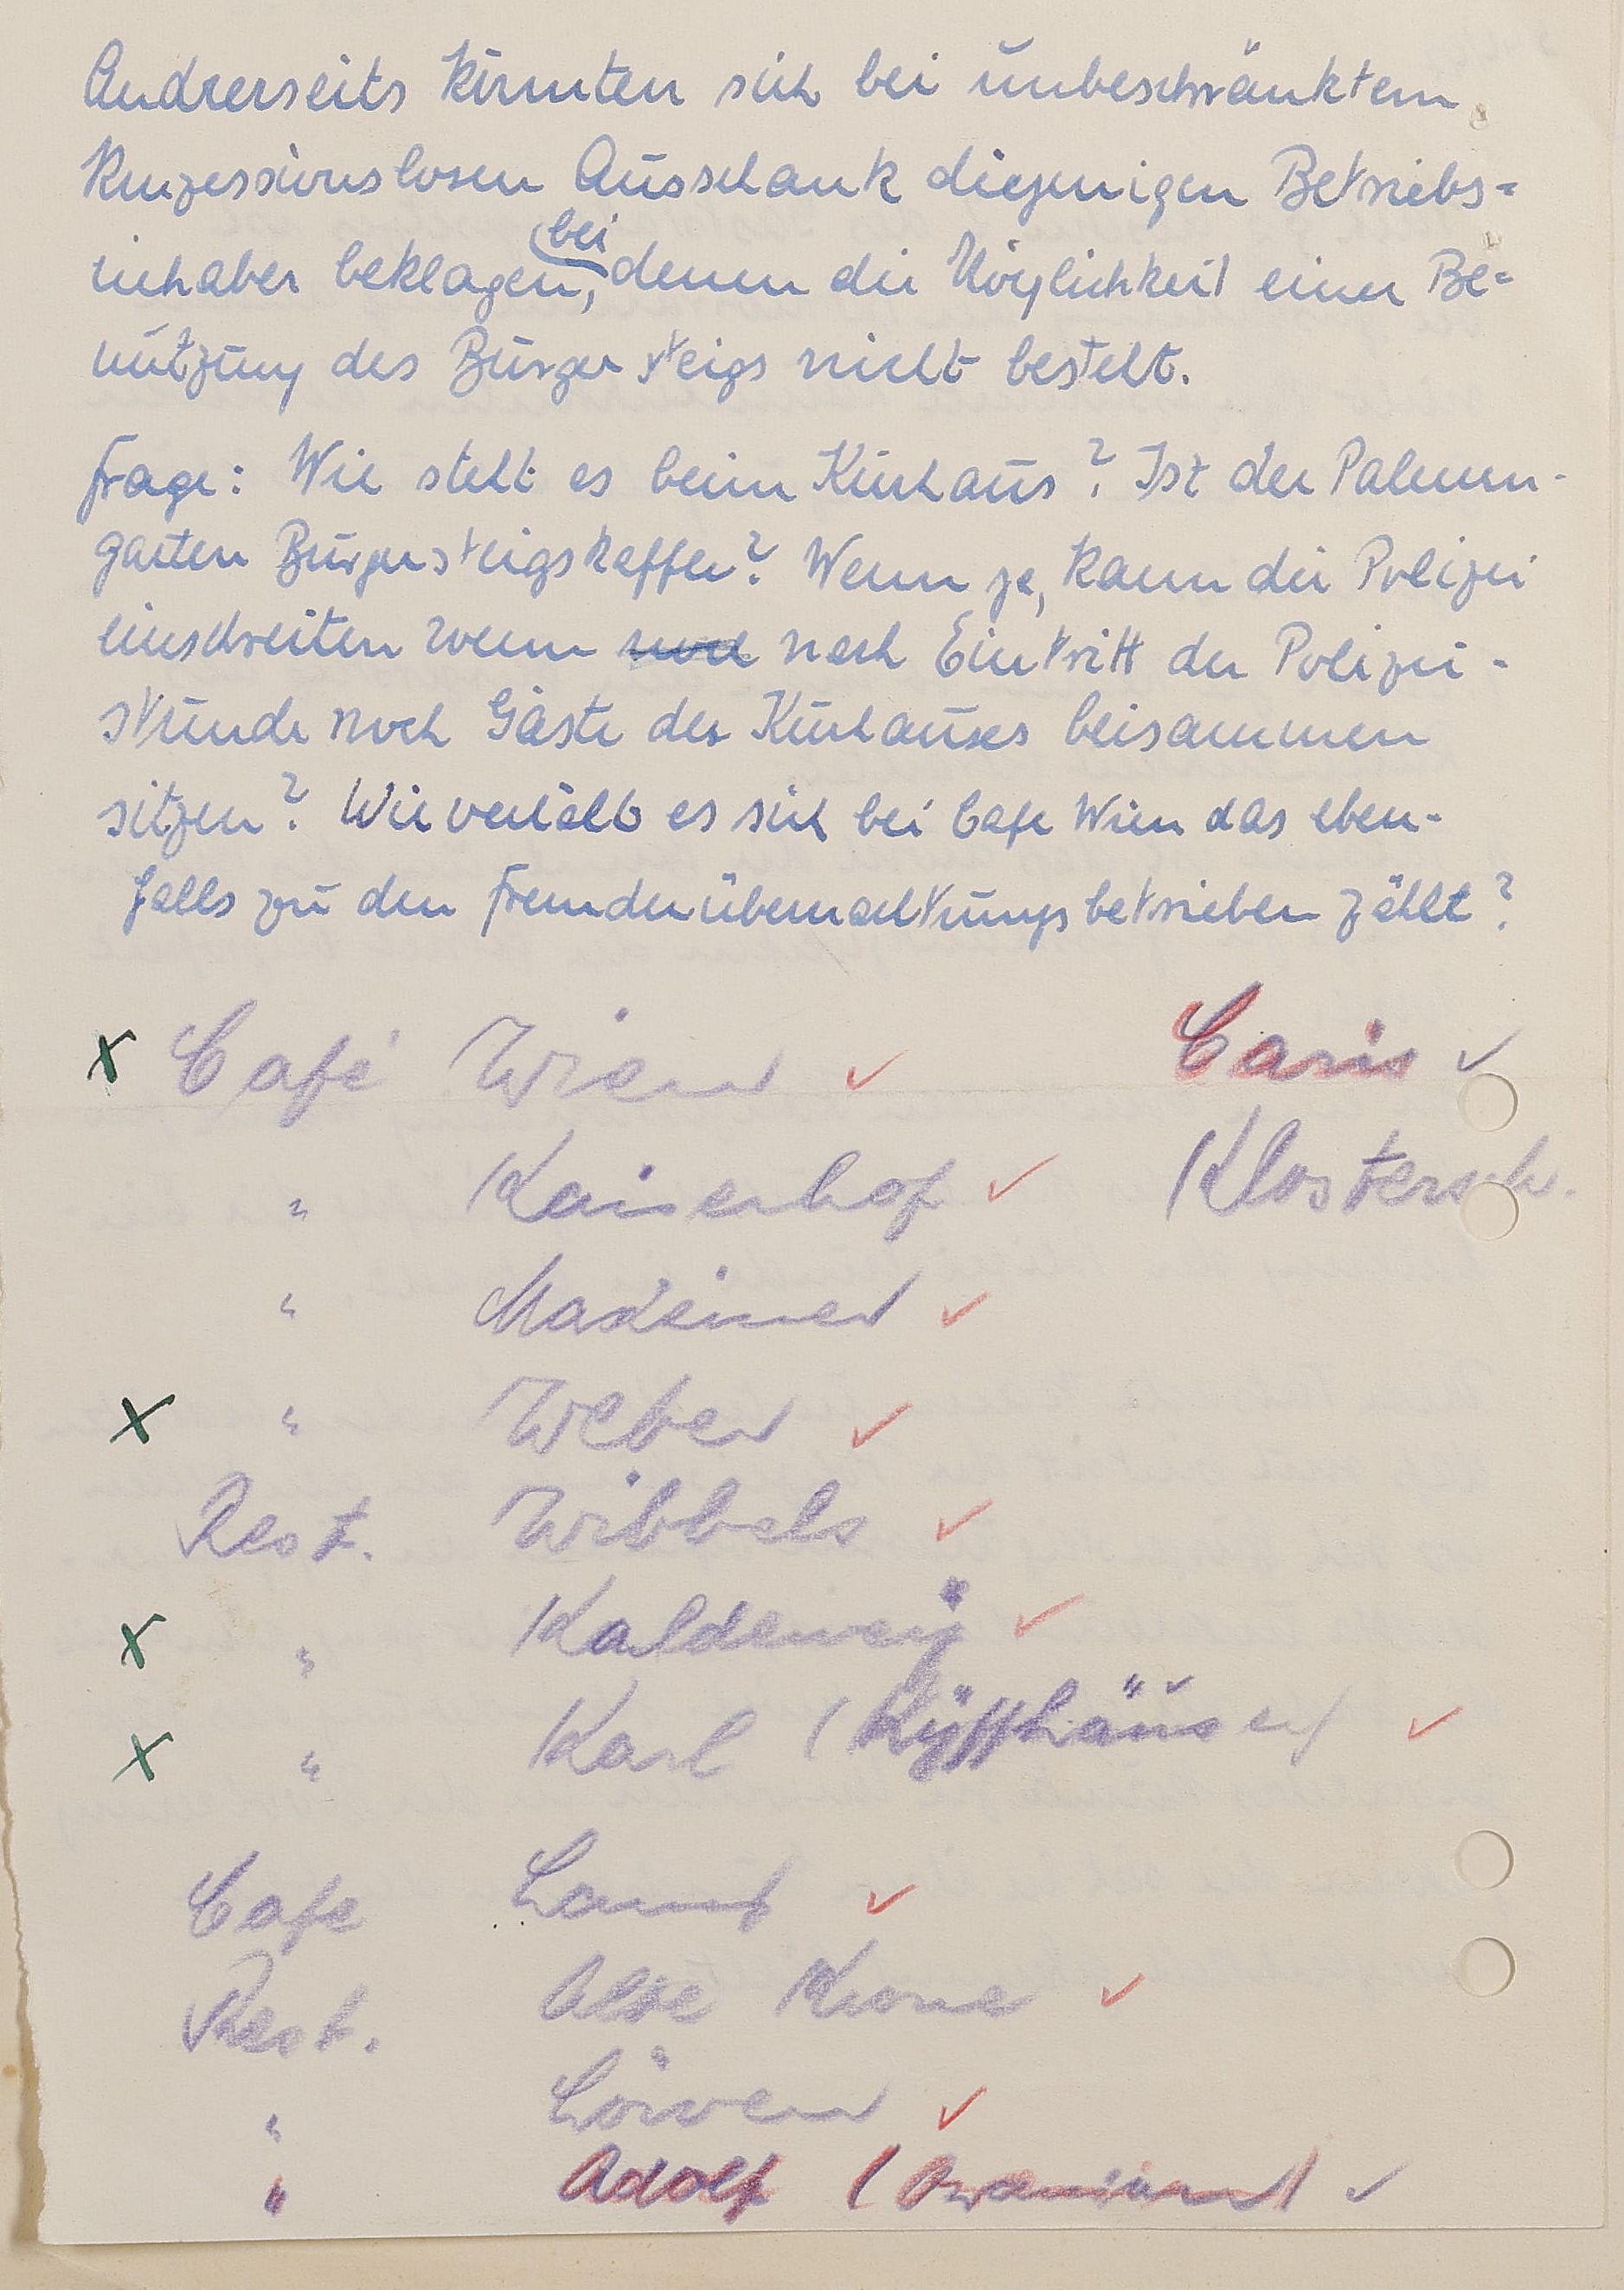 Andrerseits könnten sich bei unbeschränktem
konzessionslosen Ausschank diejenigen Betriebs-
inhaber beklagen, bei denen die Möglichkeit einer Be-
nützung des Bürgersteigs nicht besteht.
Frage: Wie steht es beim Kurhaus? Ist der Palmen-
garten Bürgersteigskaffee? Wenn ja, kann die Polizei
einschreiten wenn nach Eintritt der Polizei-
stunde noch Gäste des Kurhauses beisammen
sitzen? Wie verhält es sich bei Cafe Wien das eben-
falls zu den Fremdenübernachtungsbetrieben zählt?
x Café Wien ✓ Caris ✓
" Kaiserhof ✓ Klostersch.
" Madeiner ✓
x " Weber ✓
Rest. Wibbels ✓
x " Kaldewey ✓
x " Karl (Kÿffhäuser) ✓
Cafe ✓
Rest. Alte Krone ✓
" Löwen ✓
" Adolf ✓